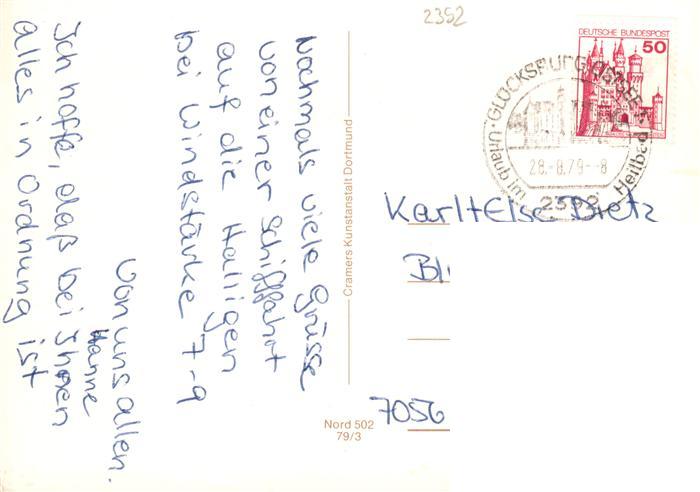 Nochmals viele Grüsse
von einer Schifffahrt
auf die Halligen
bei Windstärke 7-9
Von uns allen.
Hanne
Ich hoffe, daß bei Ihnen
alles in Ordnung ist
Cramers Kunstanstalt Dortmund
Nord 502
79/3
2352
DEUTSCHE BUNDESPOST
50
GLÜCKSBURG OSTSEE
28.-8.79--8
Urlaub im Heilbad
2392
Karl+Else Dietz
Bli
7056